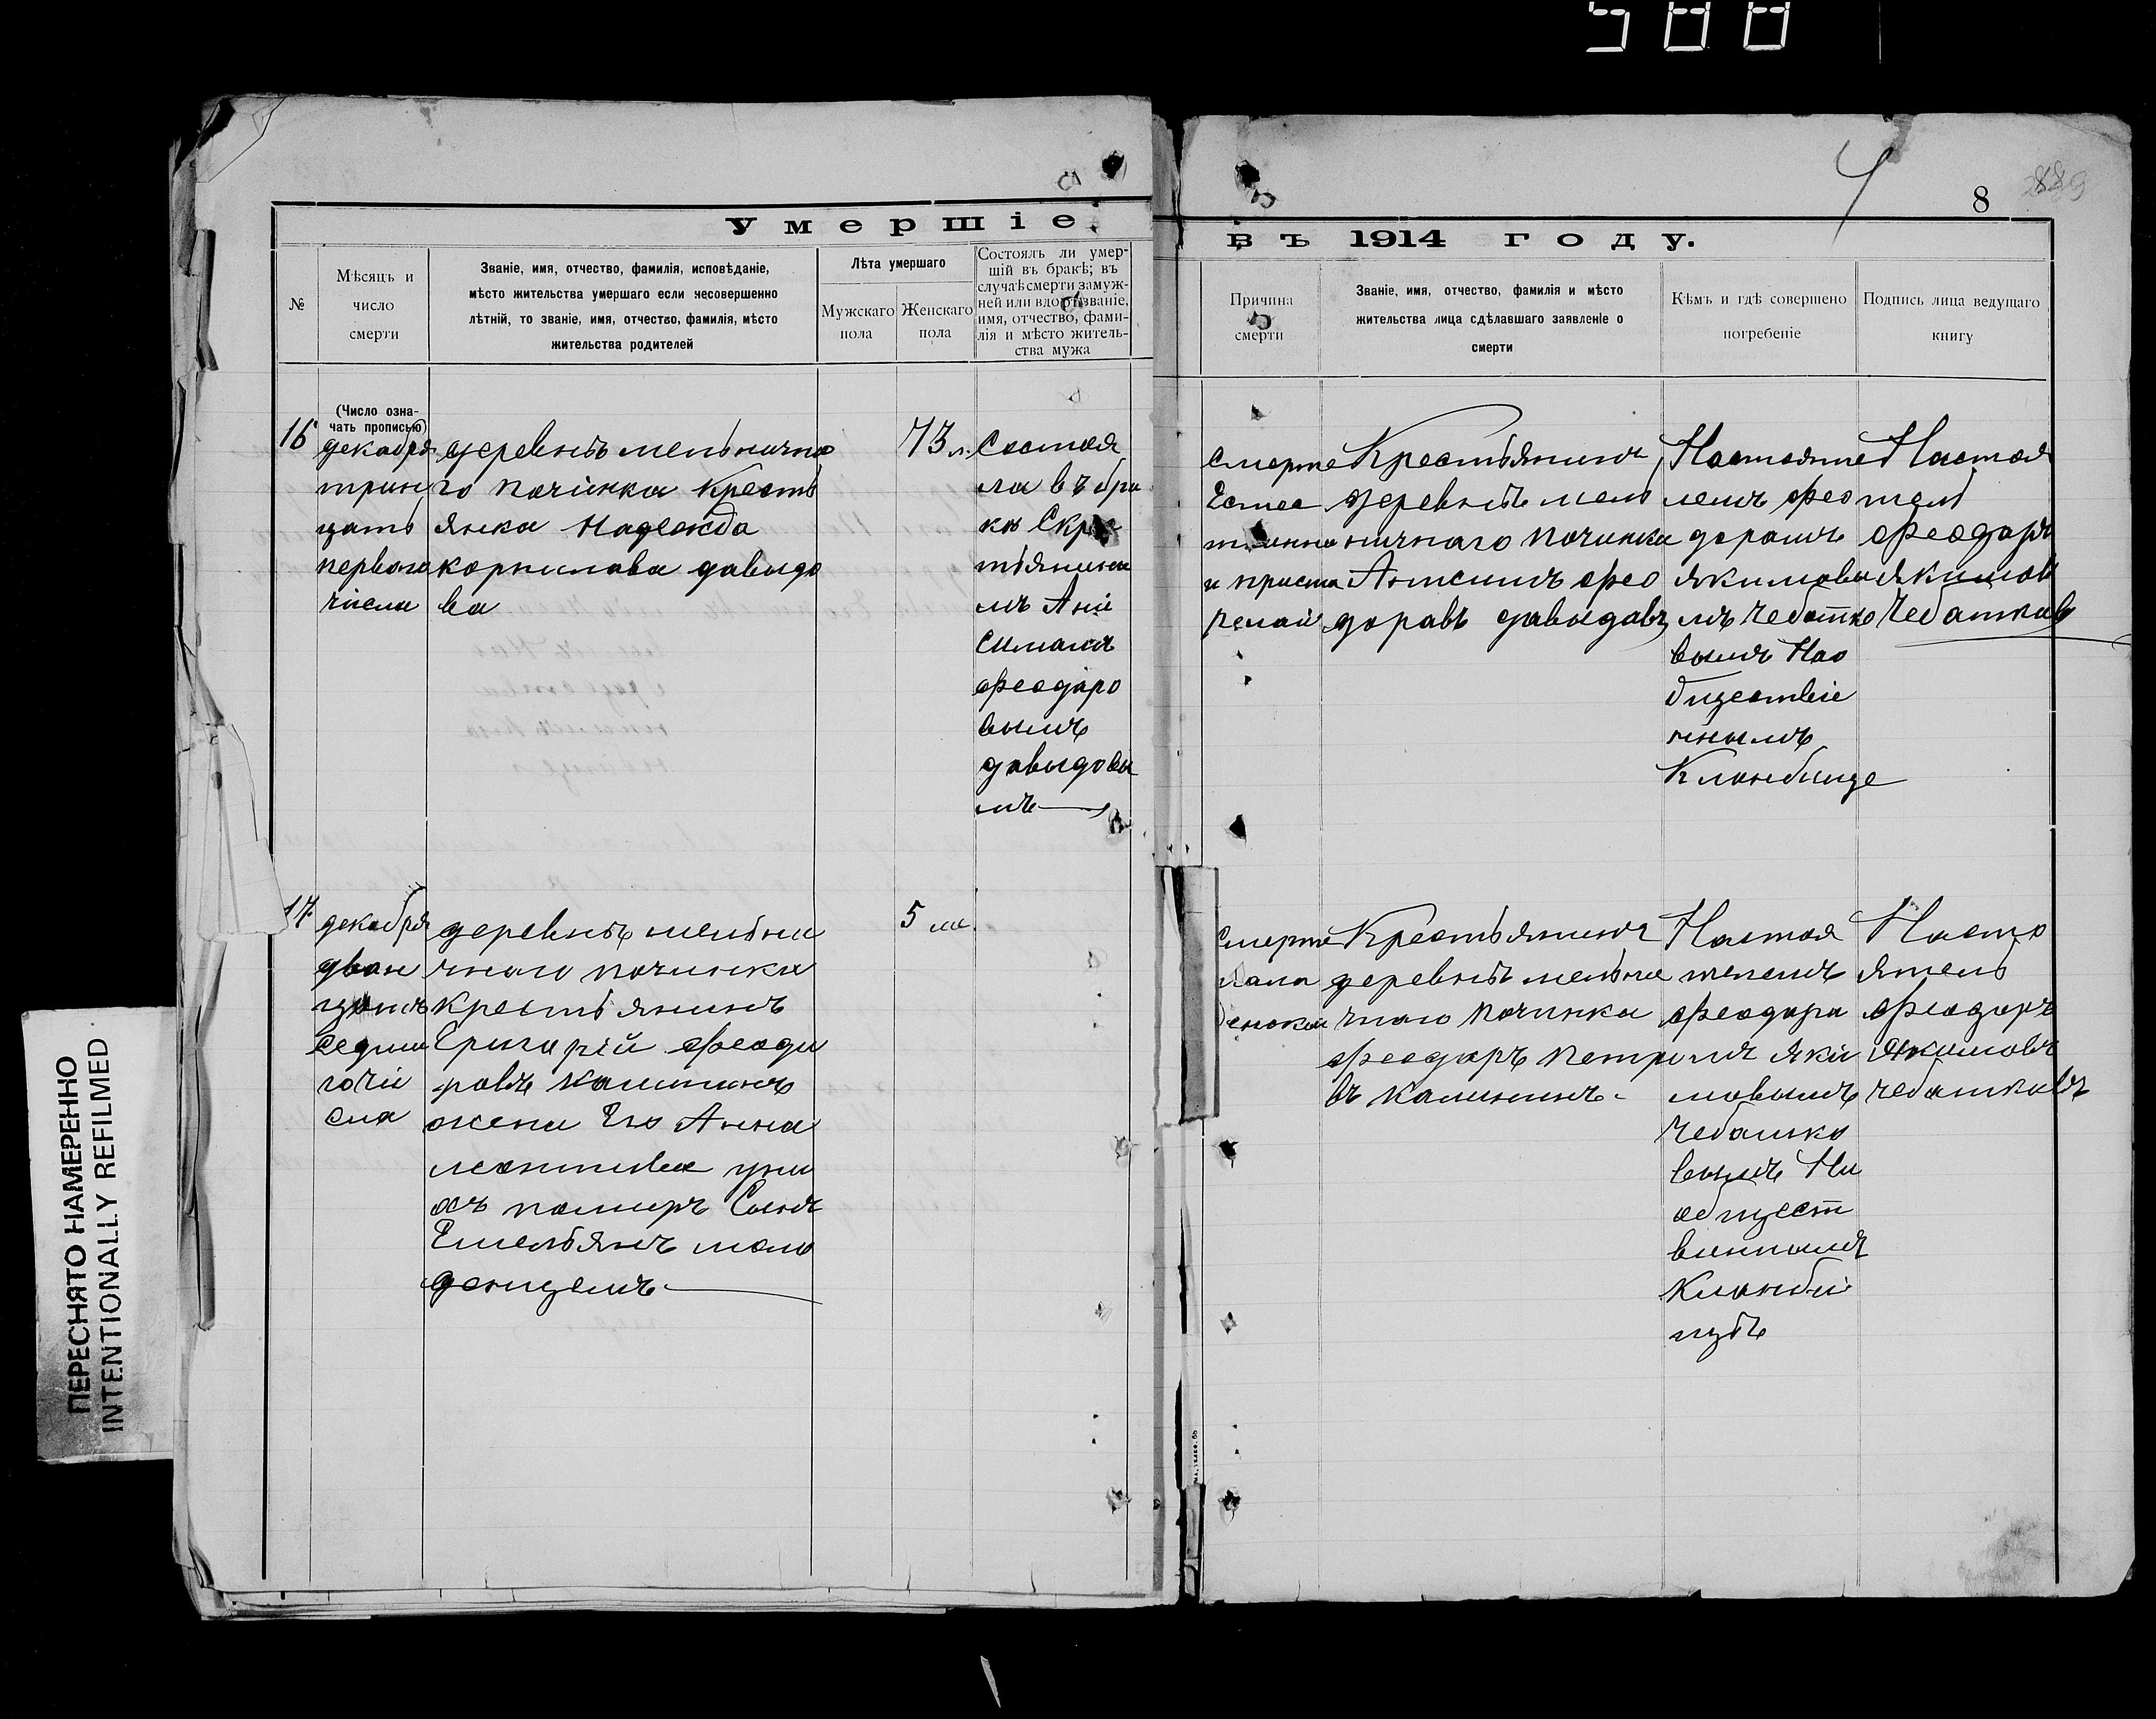 588
8
Умершіе
въ 1914 году.
№
Мѣсяцъ и
число
смерти
Званіе, имя, отчество, фамилія, исповѣданіе,
мѣсто жительства умершаго если несовершенно
лѣтній, то званіе, имя, отчество, фамилія, мѣсто
жительства родителей
Лѣта умершаго
Мужскаго
пола
Женскаго
пола
Состоялъ ли умер-
шій въ бракѣ; въ
случаѣ смерти замуж-
ней или вдовы званіе,
имя, отчество, фами-
лія и мѣсто житель-
ства мужа
Причина
смерти
Званіе, имя, отчество, фамилія и мѣсто
жительства лица сдѣлавшаго заявленіе о
смерти
Кѣмъ и гдѣ совершено
погребеніе
Подпись лица ведущаго
книгу
(Число озна-
чать прописью)
16
декабря
трин
цать
первого
числа
деревнъ мельнично
го починка Кресть
янка Надежда
корнилова давыдо
ва
73 л.
Состоя
ла въ бра
ке Скре
стьянина
мъ Ані
симамъ
феодаро
вымъ
давыдовы
мъ
Смерте
Естес
твенна
и приста
релай
Крестьянинъ
деревнъ мель
ничнаго починка
Анисимъ фео
доравъ давыдавъ
Настояте
лемъ фео
дорамъ
якимовы
мъ Чеботко
вымъ Нао
бществіе
нымъ
Кланбище
Настоя
тель
феодаръ
якимовъ
Чебаткавъ
17
декабря
дван
цать
седьма
го чи
сла
деревнъ мельни
чного починка
крестьянинъ
Григорій феода
ровъ калининъ
жена Его Анна
леонтива уни
хъ памеръ Сынъ
Емельянъ мла
денцемъ
5 м.
Смерте
Крестьянинъ
деревнъ мельни
чнаго починка
феодаръ петро
въ калининъ
Настоя
телемъ
феодара
мъ яки
мовымъ
Чебатко
вымъ На
общест
винымъ
Кланби
щъ
Насто
ятель
феодаръ
якимовъ
чебаткавъ
ПЕРЕСНЯТО НАМЕРЕННО
INTENTIONALLY REFILMED